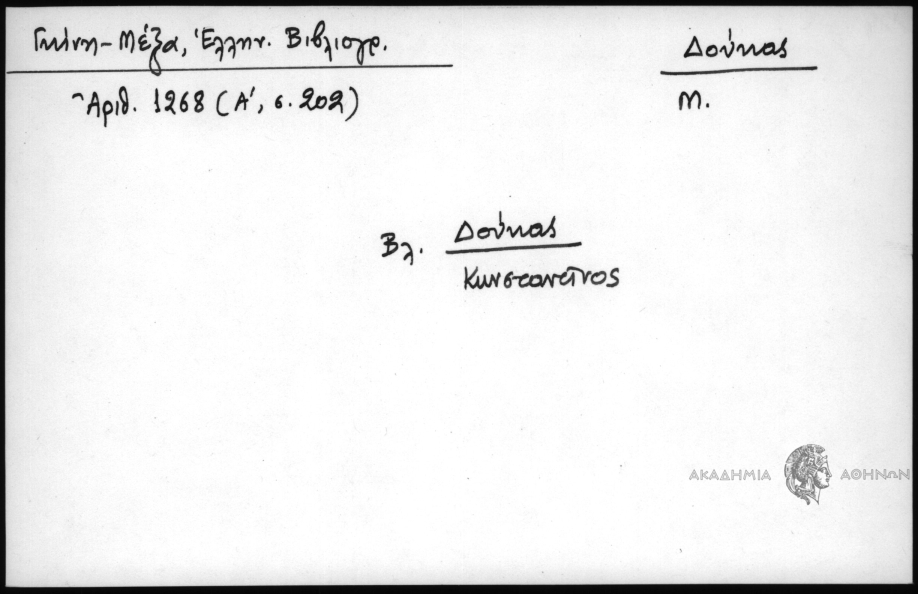 Γκίνη-Μέξα, Ἑλλην. Βιβλιογρ.
Ἀριθ. 1268 (Α', σ. 202)
Δούκας
Μ.
Βλ. Δούκας
Κωνσταντῖνος
ΑΚΑΔΗΜΙΑ ΑΘΗΝΩΝ